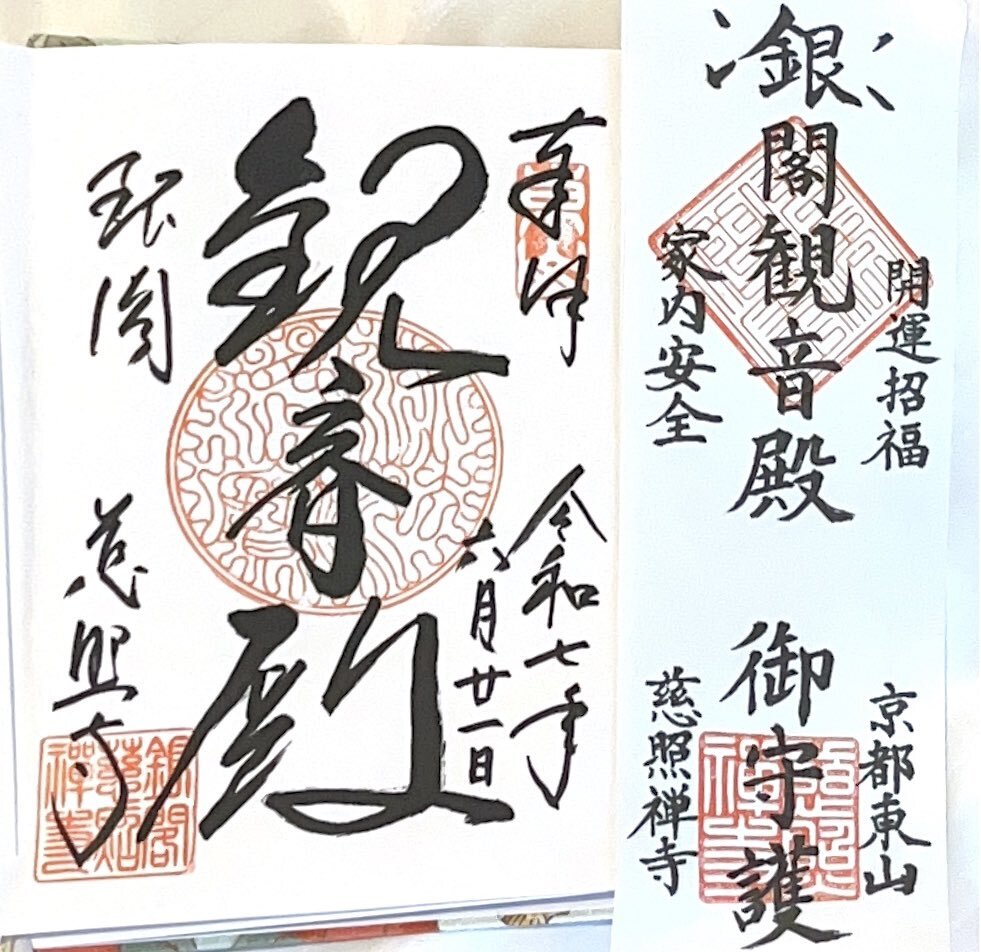 奉拝
令和七年
六月廿一日
観音殿
銀閣
慈照寺
銀閣
慈照
禅寺
開運招福
京都東山
銀閣観音殿
御守護
家内安全
慈照禅寺